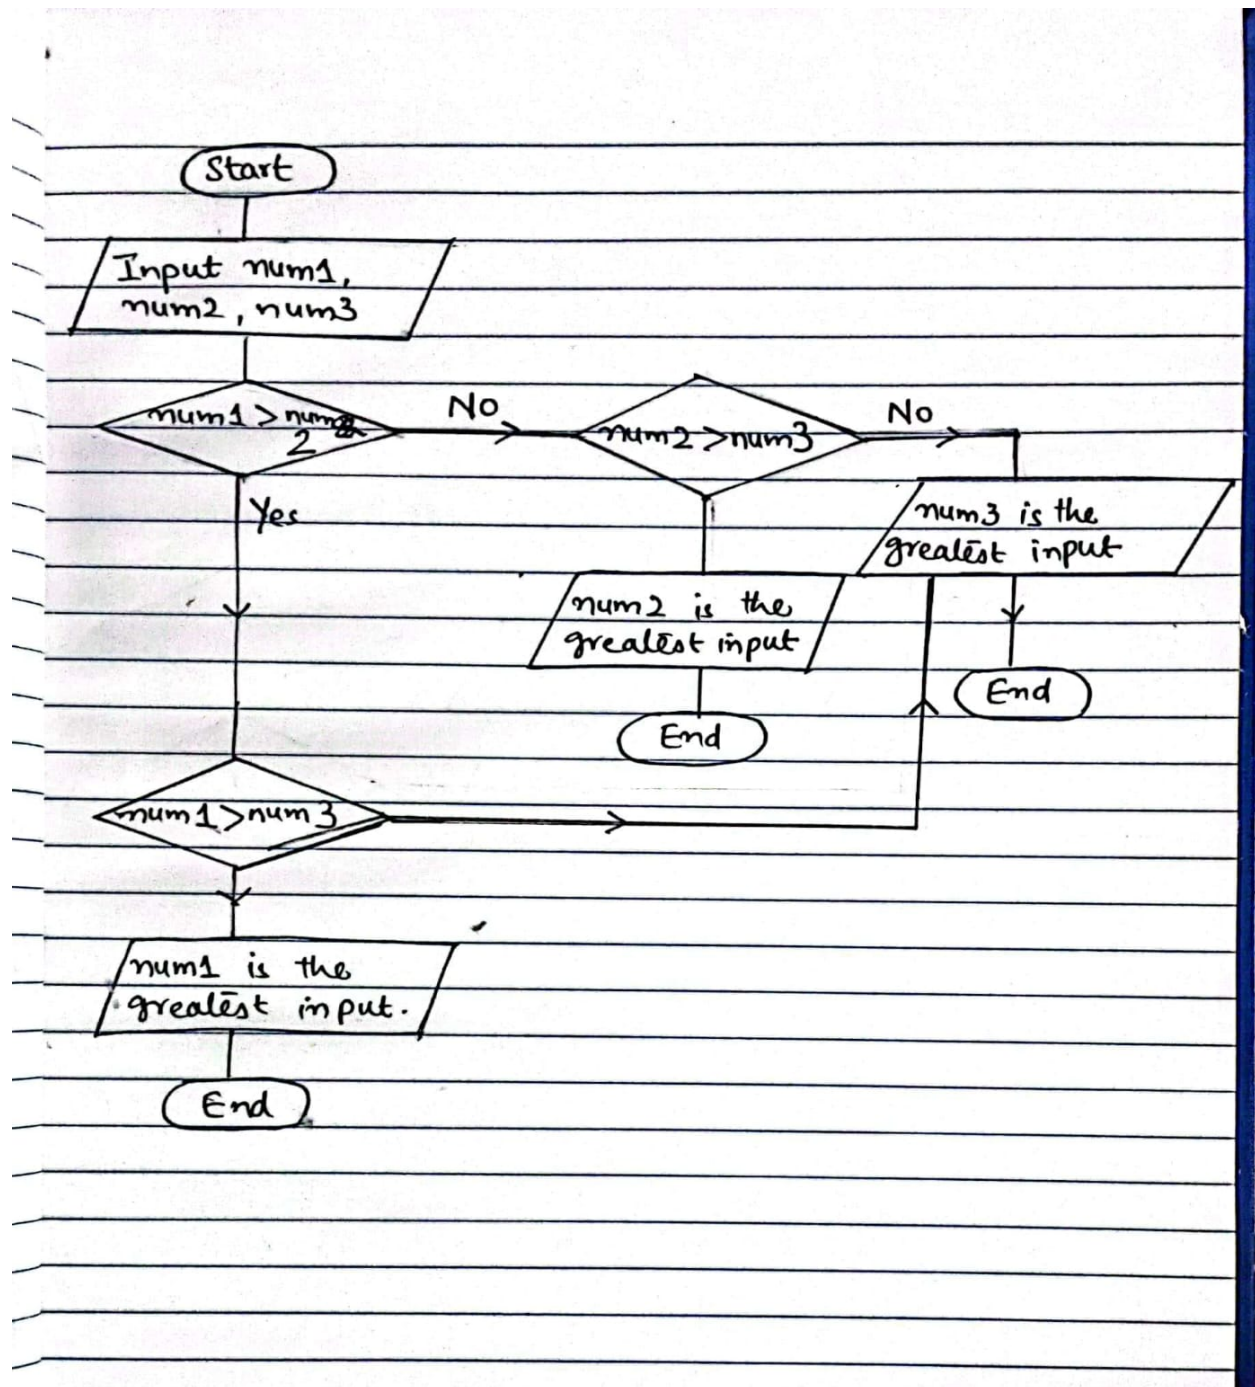 Start
Input num1,
num2, num3
num1 > num
2
No
num2 > num3
No
Yes
num3 is the
greatest input
num2 is the
greatest input
End
End
num1 > num3
num1 is the
greatest input.
End